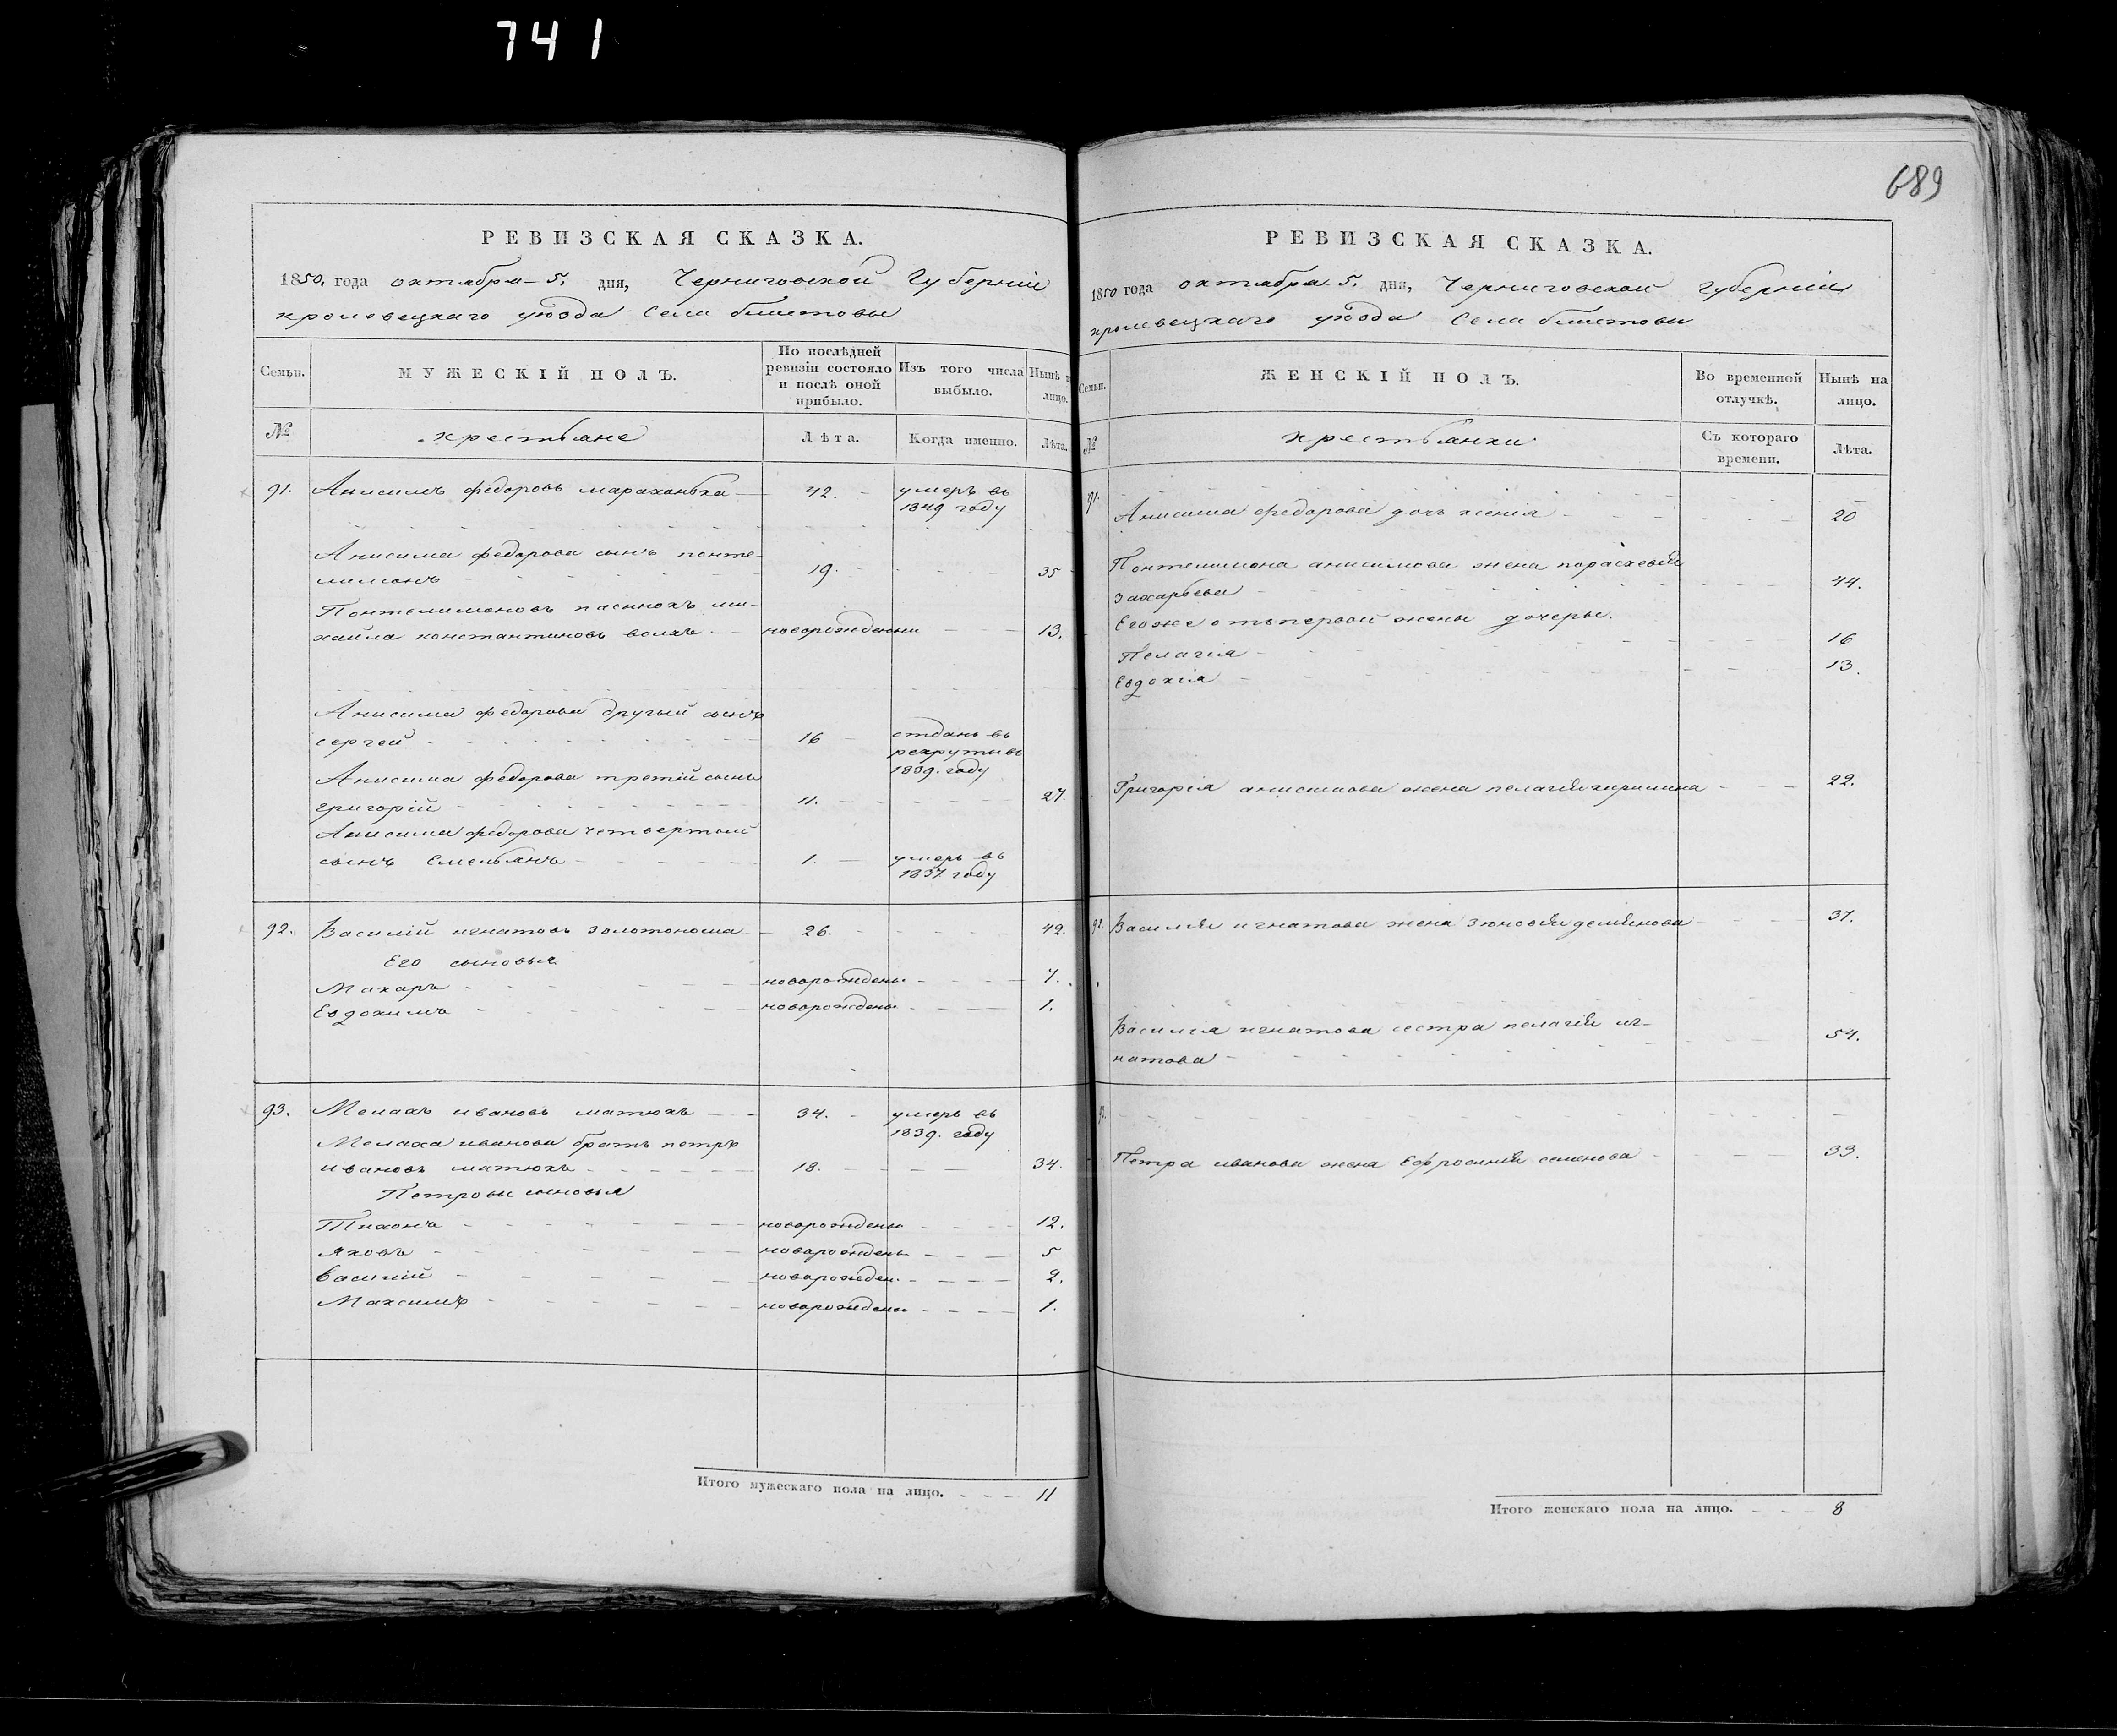 741
689
РЕВИЗСКАЯ СКАЗКА.
1850, года октября 5. дня, Черниговской Губернии
кролевецкаго уѣзда Села
Семьи.
МУЖЕСКІЙ ПОЛЪ.
По послѣдней
ревизіи состояло
и послѣ оной
прибыло.
Изъ того числа
выбыло.
Нынѣ
лицо.
№
крестьяне
Лѣта.
Когда именно.
Лѣта.
91. Анисимъ федоровъ 42. умеръ въ
1849 году
Анисима федорова сынъ понте-
лимонъ 19. 35
Понтелимоновъ пасынокъ ми-
хайла константиновъ волкъ новорожденны 13.
Анисима федорова другый сынъ
сергей 16 отданъ въ
рекруты въ
1839. году
Анисима федорова третій сынъ
григорій 11. 27.
Анисима федорова четвертый
сынъ Емельянъ 1. умеръ въ
1837 году
92. Василій игнатовъ золотоноша 26. 42.
Его сыновья
Макаръ новорожденъ 7.
Евдокимъ новорожденъ 1.
93. ивановъ матюхъ 34. умеръ въ
1839. году
иванова братъ петръ
ивановъ матюхъ 18. 34.
Петровы сыновья
Тихонъ новорожденъ 12.
яковъ новорожденъ 5
василій новорожден. 2.
Максимъ новорожденъ 1.
Итого мужескаго пола на лицо. 11
РЕВИЗСКАЯ СКАЗКА.
1850 года октября 5. дня, Черниговской Губерніи
кролевецкаго уѣзда Села
Семьи.
ЖЕНСКІЙ ПОЛЪ.
Во временной
отлучкѣ.
Нынѣ на
лицо.
№
крестьянки
Съ котораго
времени.
Лѣта.
91.
Анисима федорова дочь ксенія 20
Понтелимона анисимова жена параскевія
захарьева 44.
Егоже отъ первой жены дочеры.
Пелагія 16
Евдокія 13.
Григорія анисимова жена пелагія кирилова 22.
92. Василія игнатова жена зѣновія демянова 37.
Василія игнатова сестра пелагія иг-
натова 54.
93.
Петра иванова жена Ефросинія семенова 33.
Итого женскаго пола на лицо. 8